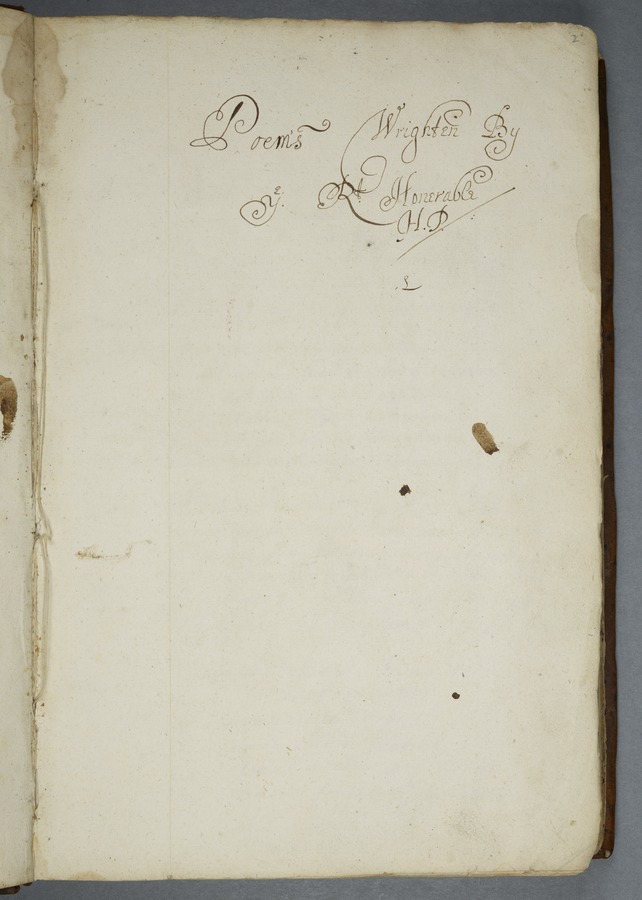 2
Poem's Wrighten By
yͤ. Rt Honerable
H.P.
1